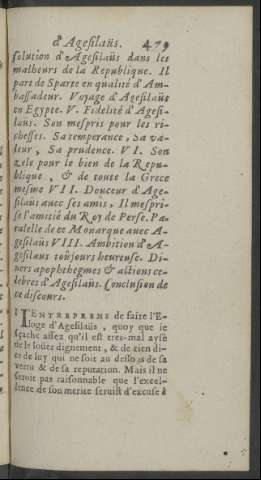 d'Agesilaüs. 479
solution d'Agesilaüs dans les
malheurs de la Republique. Il
part de Sparte en qualité d'Am-
bassadeur. Voyage d'Agesilaüs
en Egypte. V. Fidelité d'Agesi-
laus. Son mespris pour les ri-
chesses. Sa temperance, Sa va-
leur, Sa prudence. VI. Son
zele pour le bien de la Repu-
blique, & de toute la Grece
mesme VII. Douceur d'Age-
silaüs avec ses amis, Il mespri-
se l'amitié du Roy de Perse. Pa-
ralelle de ce Monarque avec A-
gesilaüs VIII. Ambition d'A-
gesilaus toûjours heureuse. Di-
vers apophthegmes & actions ce-
lebres d'Agesilaüs. Conclusion de
ce discours.
I'ENTREPRENS de faire l'E-
loge d'Agesilaüs, quoy que ie
sçache assez qu'il est tres-mal aysé
de le loüer dignement, & de rien di-
re de luy qui ne soit au dessous de sa
vertu & de sa reputation. Mais il ne
seroit pas raisonnable que l'excel-
lence de son merite seruist d'excuse à